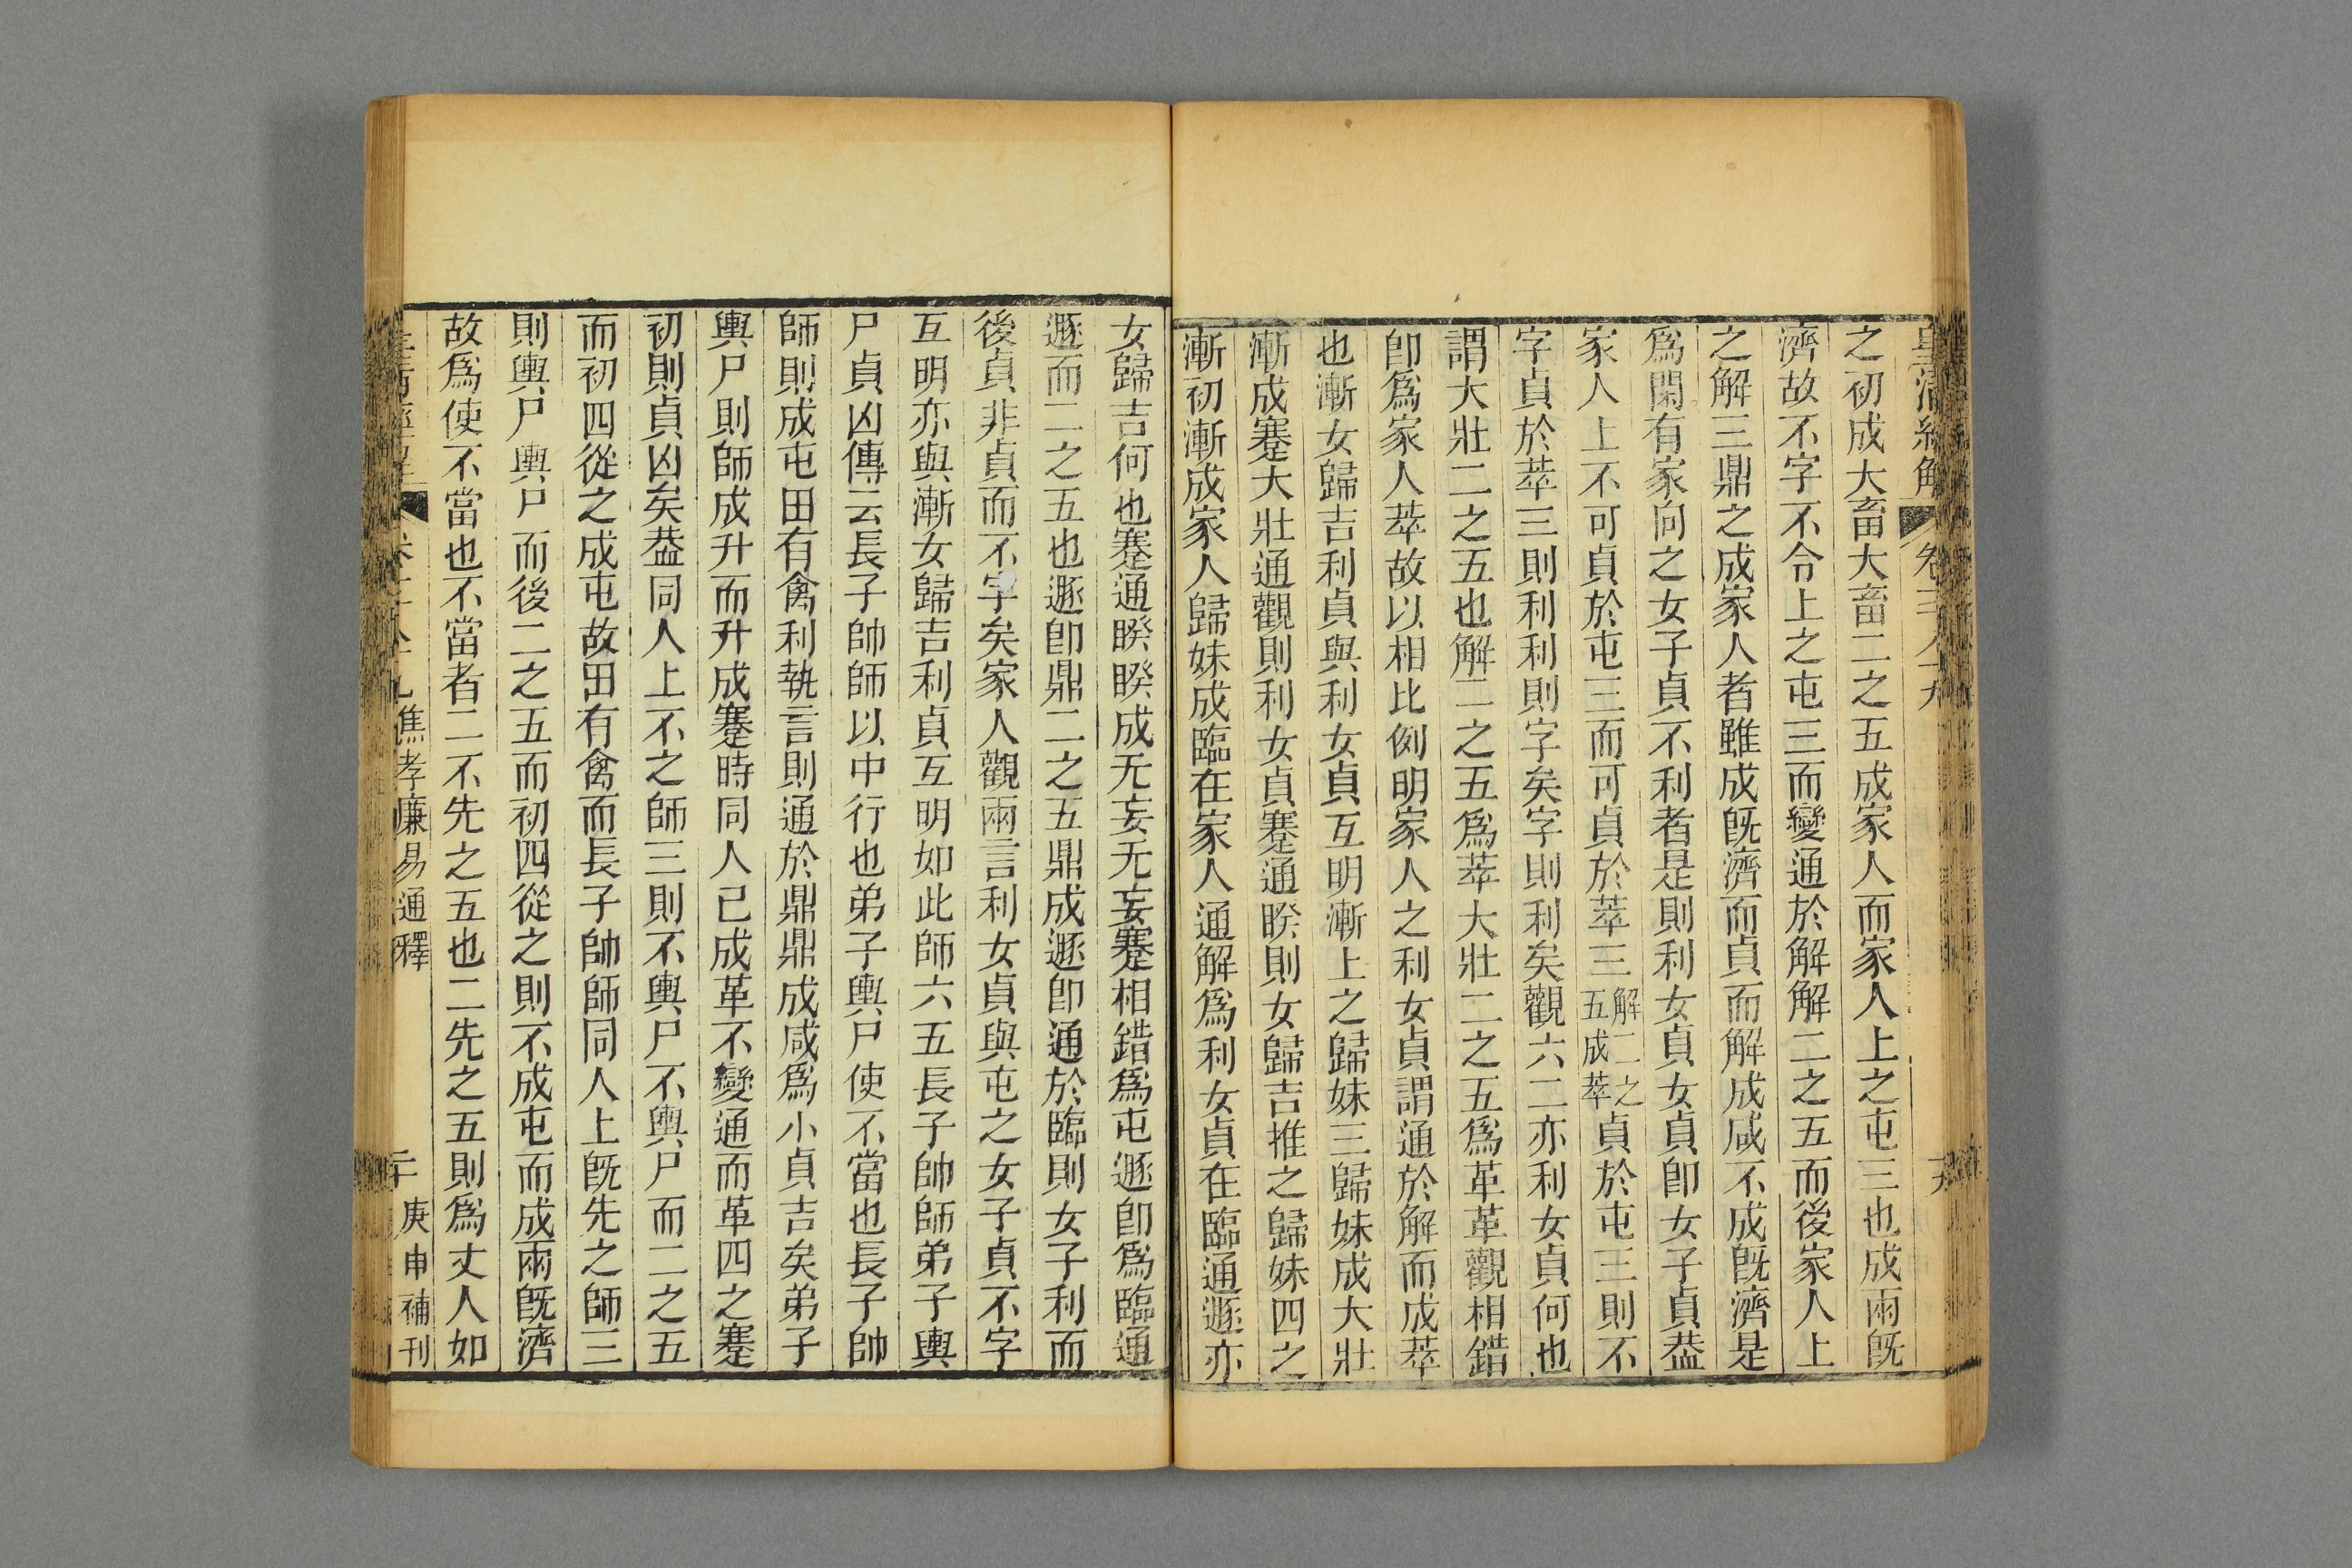 皇清經解 卷三八十九 十九
之初成大畜大畜二之五成家人而家人上之屯三也成兩旣
濟故不字不令上之屯三而變通於解解二之五而後家人上
之解三鼎之成家人者雖成旣濟而貞而解成咸不成旣濟是
爲閑有家向之女子貞不利者是則利女貞女貞卽女子貞葢
家人上不可貞於屯三而可貞於萃三解二之五成萃貞於屯三則不
字貞於萃三則利利則字矣字則利矣觀六二亦利女貞何也
謂大壯二之五也解二之五爲萃大壯二之五爲革革觀相錯
卽爲家人萃故以相比例明家人之利女貞謂通於解而成萃
也漸女歸吉利貞與利女貞互明漸上之歸妹三歸妹成大壯
漸成蹇大壯通觀則利女貞蹇通睽則女歸吉推之歸妹四之
漸初漸成家人歸妹成臨在家人通解爲利女貞在臨通遯亦
女歸吉何也蹇通睽睽成无妄无妄蹇相錯爲屯遯卽爲臨通
遯而二之五也遯卽鼎二之五鼎成遯卽通於臨則女子利而
後貞非貞而不字矣家人觀兩言利女貞與屯之女子貞不字
互明亦與漸女歸吉利貞互明如此師六五長子帥師弟子輿
尸貞凶傳云長子帥師以中行也弟子輿尸使不當也長子帥
師則成屯田有禽利執言則通於鼎鼎成咸爲小貞吉矣弟子
輿尸則師成升而升成蹇時同人已成革不變通而革四之蹇
初則貞凶矣葢同人上不之師三則不輿尸不輿尸而二之五
而初四從之成屯故田有禽而長子帥師同人上旣先之師三
則輿尸輿尸而後二之五而初四從之則不成屯而成兩旣濟
故爲使不當也不當者二不先之五也二先之五則爲丈人如
焦孝廉易通釋 二十 庚申補刊